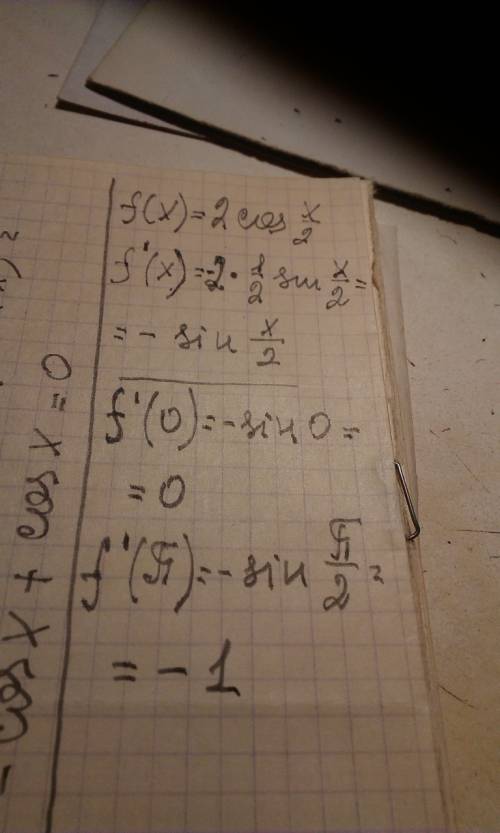 f(x)=2 cos x/2
f'(x)=-2·1/2 sin x/2=
=- sin x/2
f'(0)=-sin 0=
=0
f'(π)=-sin π/2=
=-1
- cos x + cos x = 0